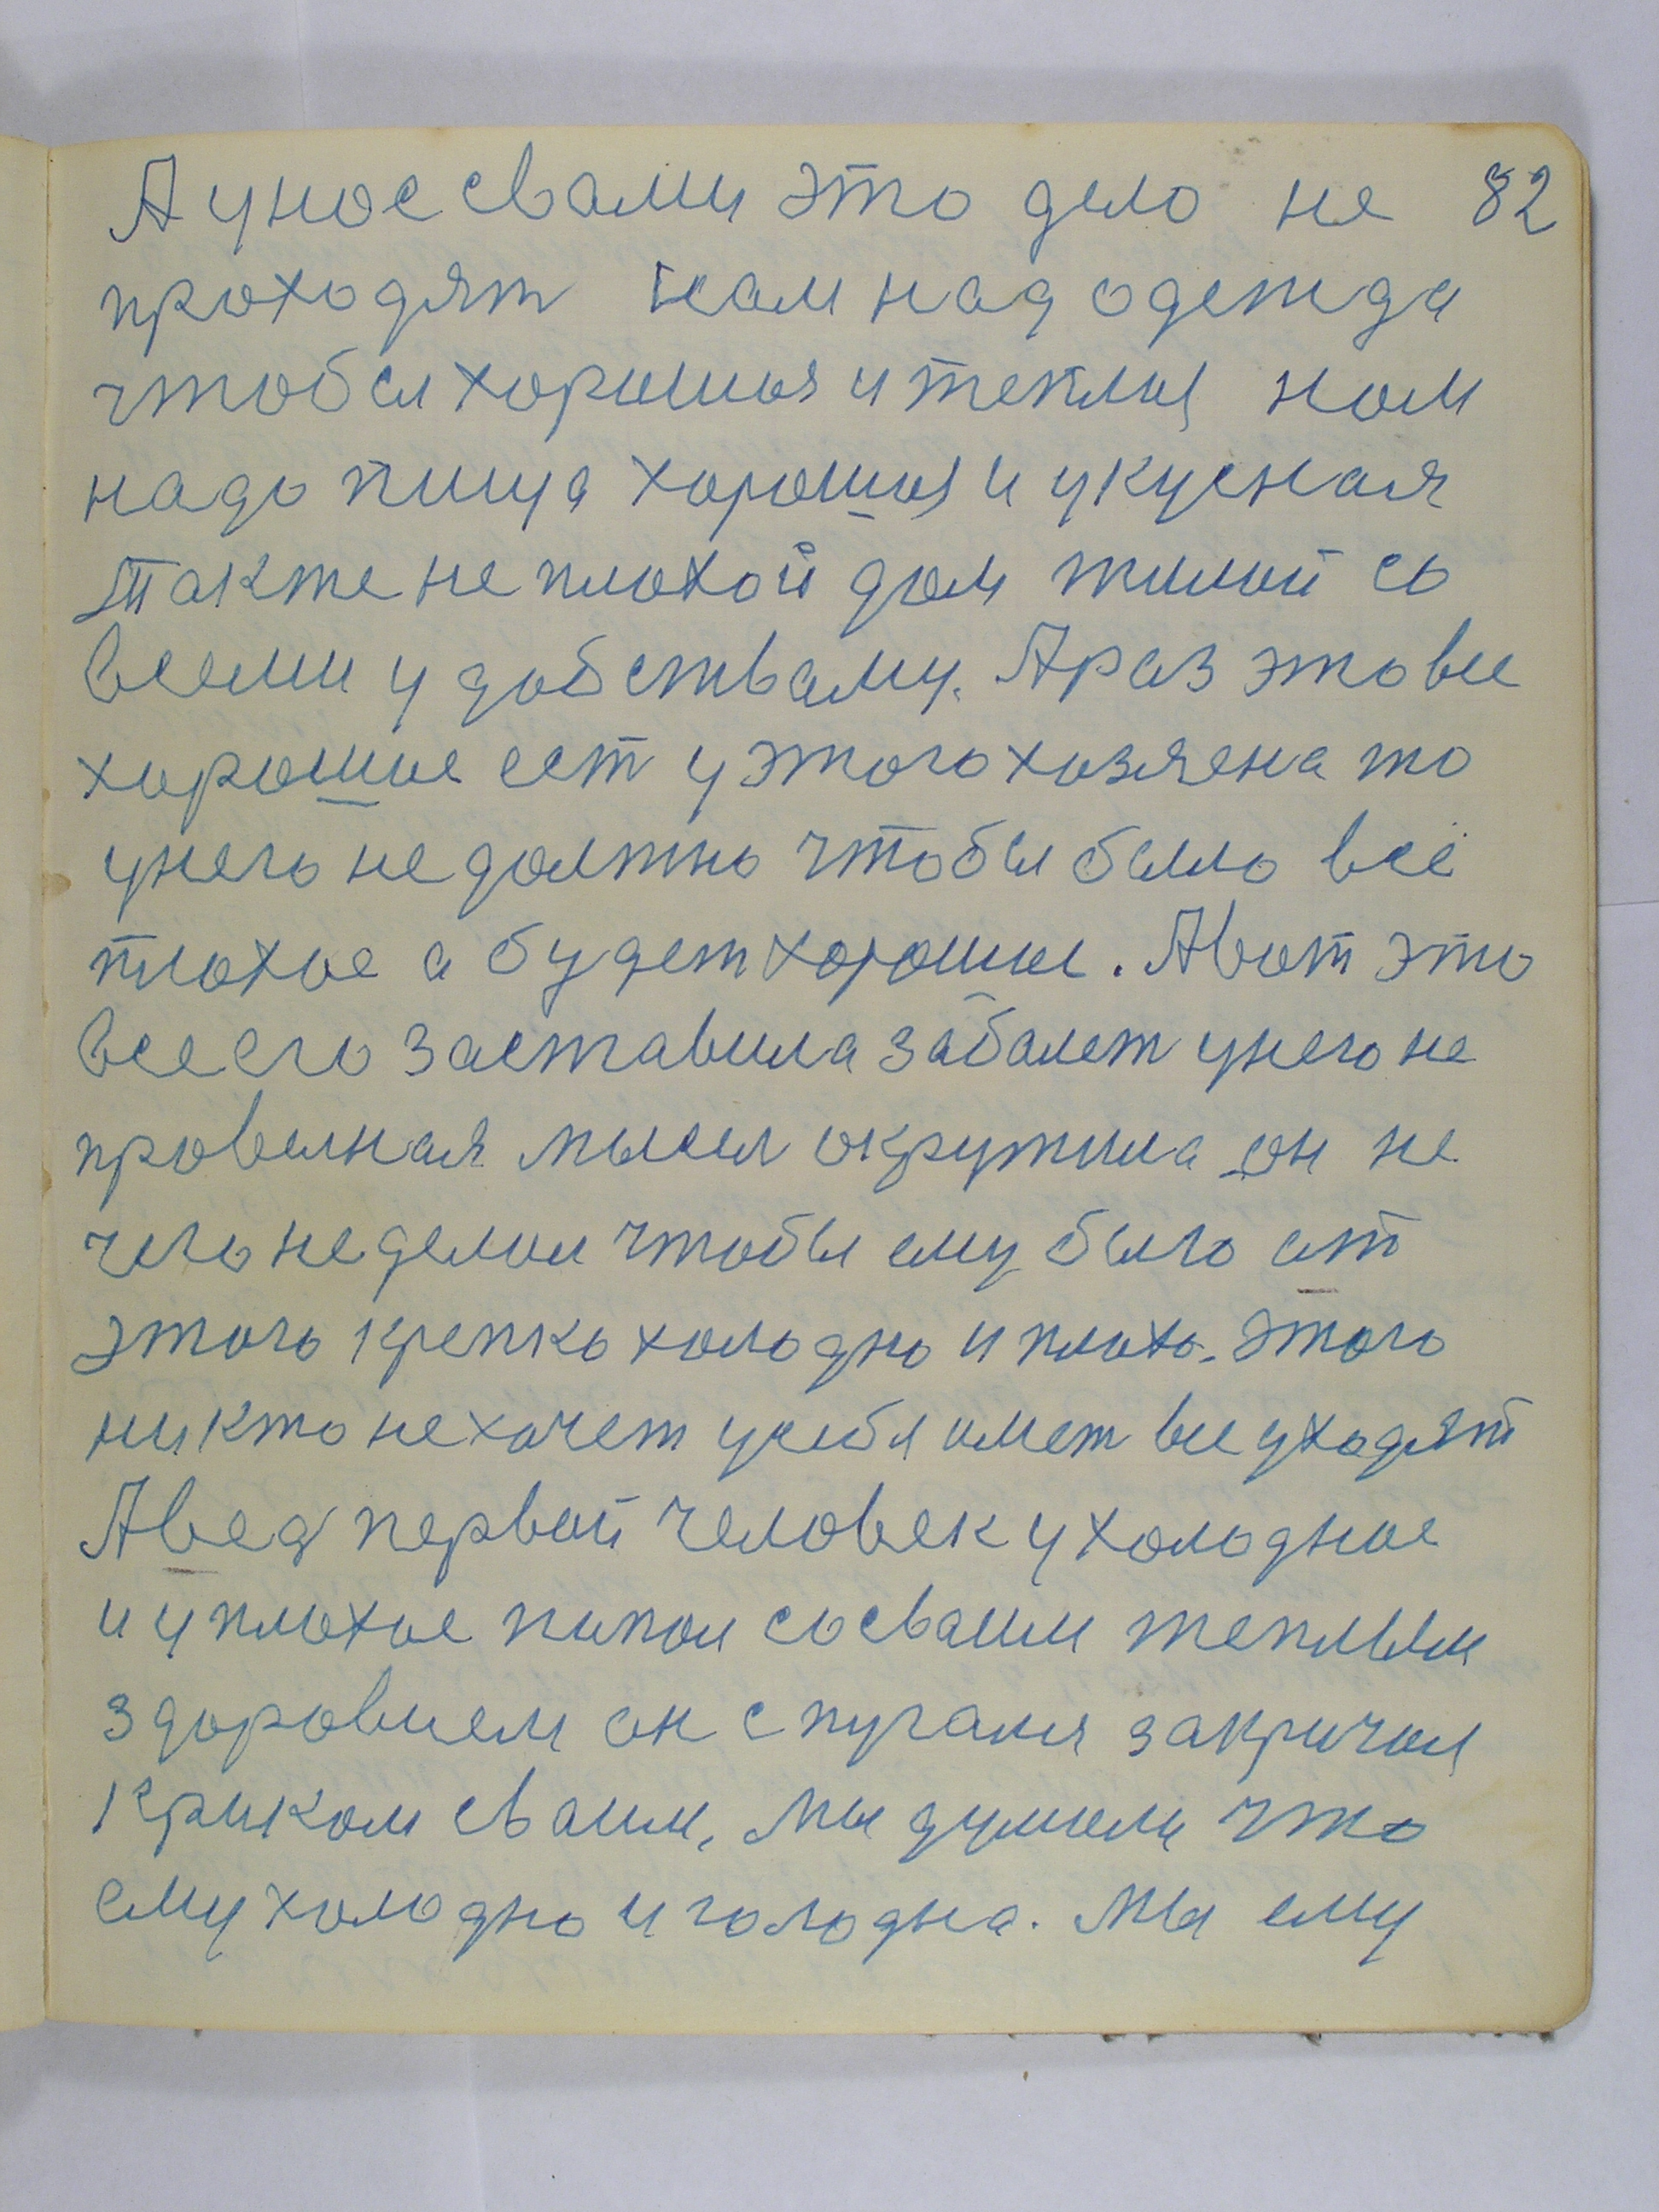 А унос свами это дело не 82
проходят нам над одежда
чтобы хорошоя и теплоя ном
надо пища хорошоя и укусная
также не плохой дом жилой со
всеми удобствами. А раз это все
хорошое ест у этого хозяена то
унего недолжно чтобы было всё
плохое а будет хорошое. А вот это
все его заставила заболет унего не
провелная мысел окружила он не
чего неделол чтобы ему было от
этого крепко холодно и плохо. Этого
никто нехочет усебя имет все уходят
А вед первой человек у холодное
и у плохое попол сосваим теплым
здоровием он спугался закричал
криком сваим, мы думоли что
ему холодно и голодна. Мы ему